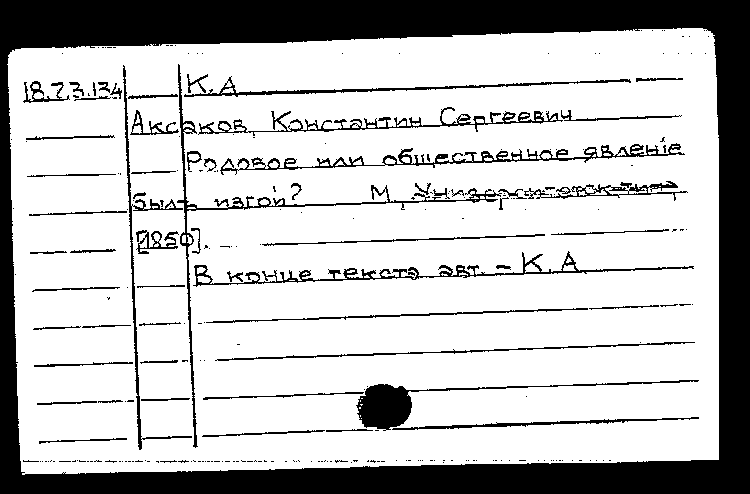 18.7.3.134 К.А
Аксаков, Константин Сергеевич
Родовое или общественное явленiе
былъ изгой? М., Университетск. тип.,
[1850].
В конце текста авт. – К.А